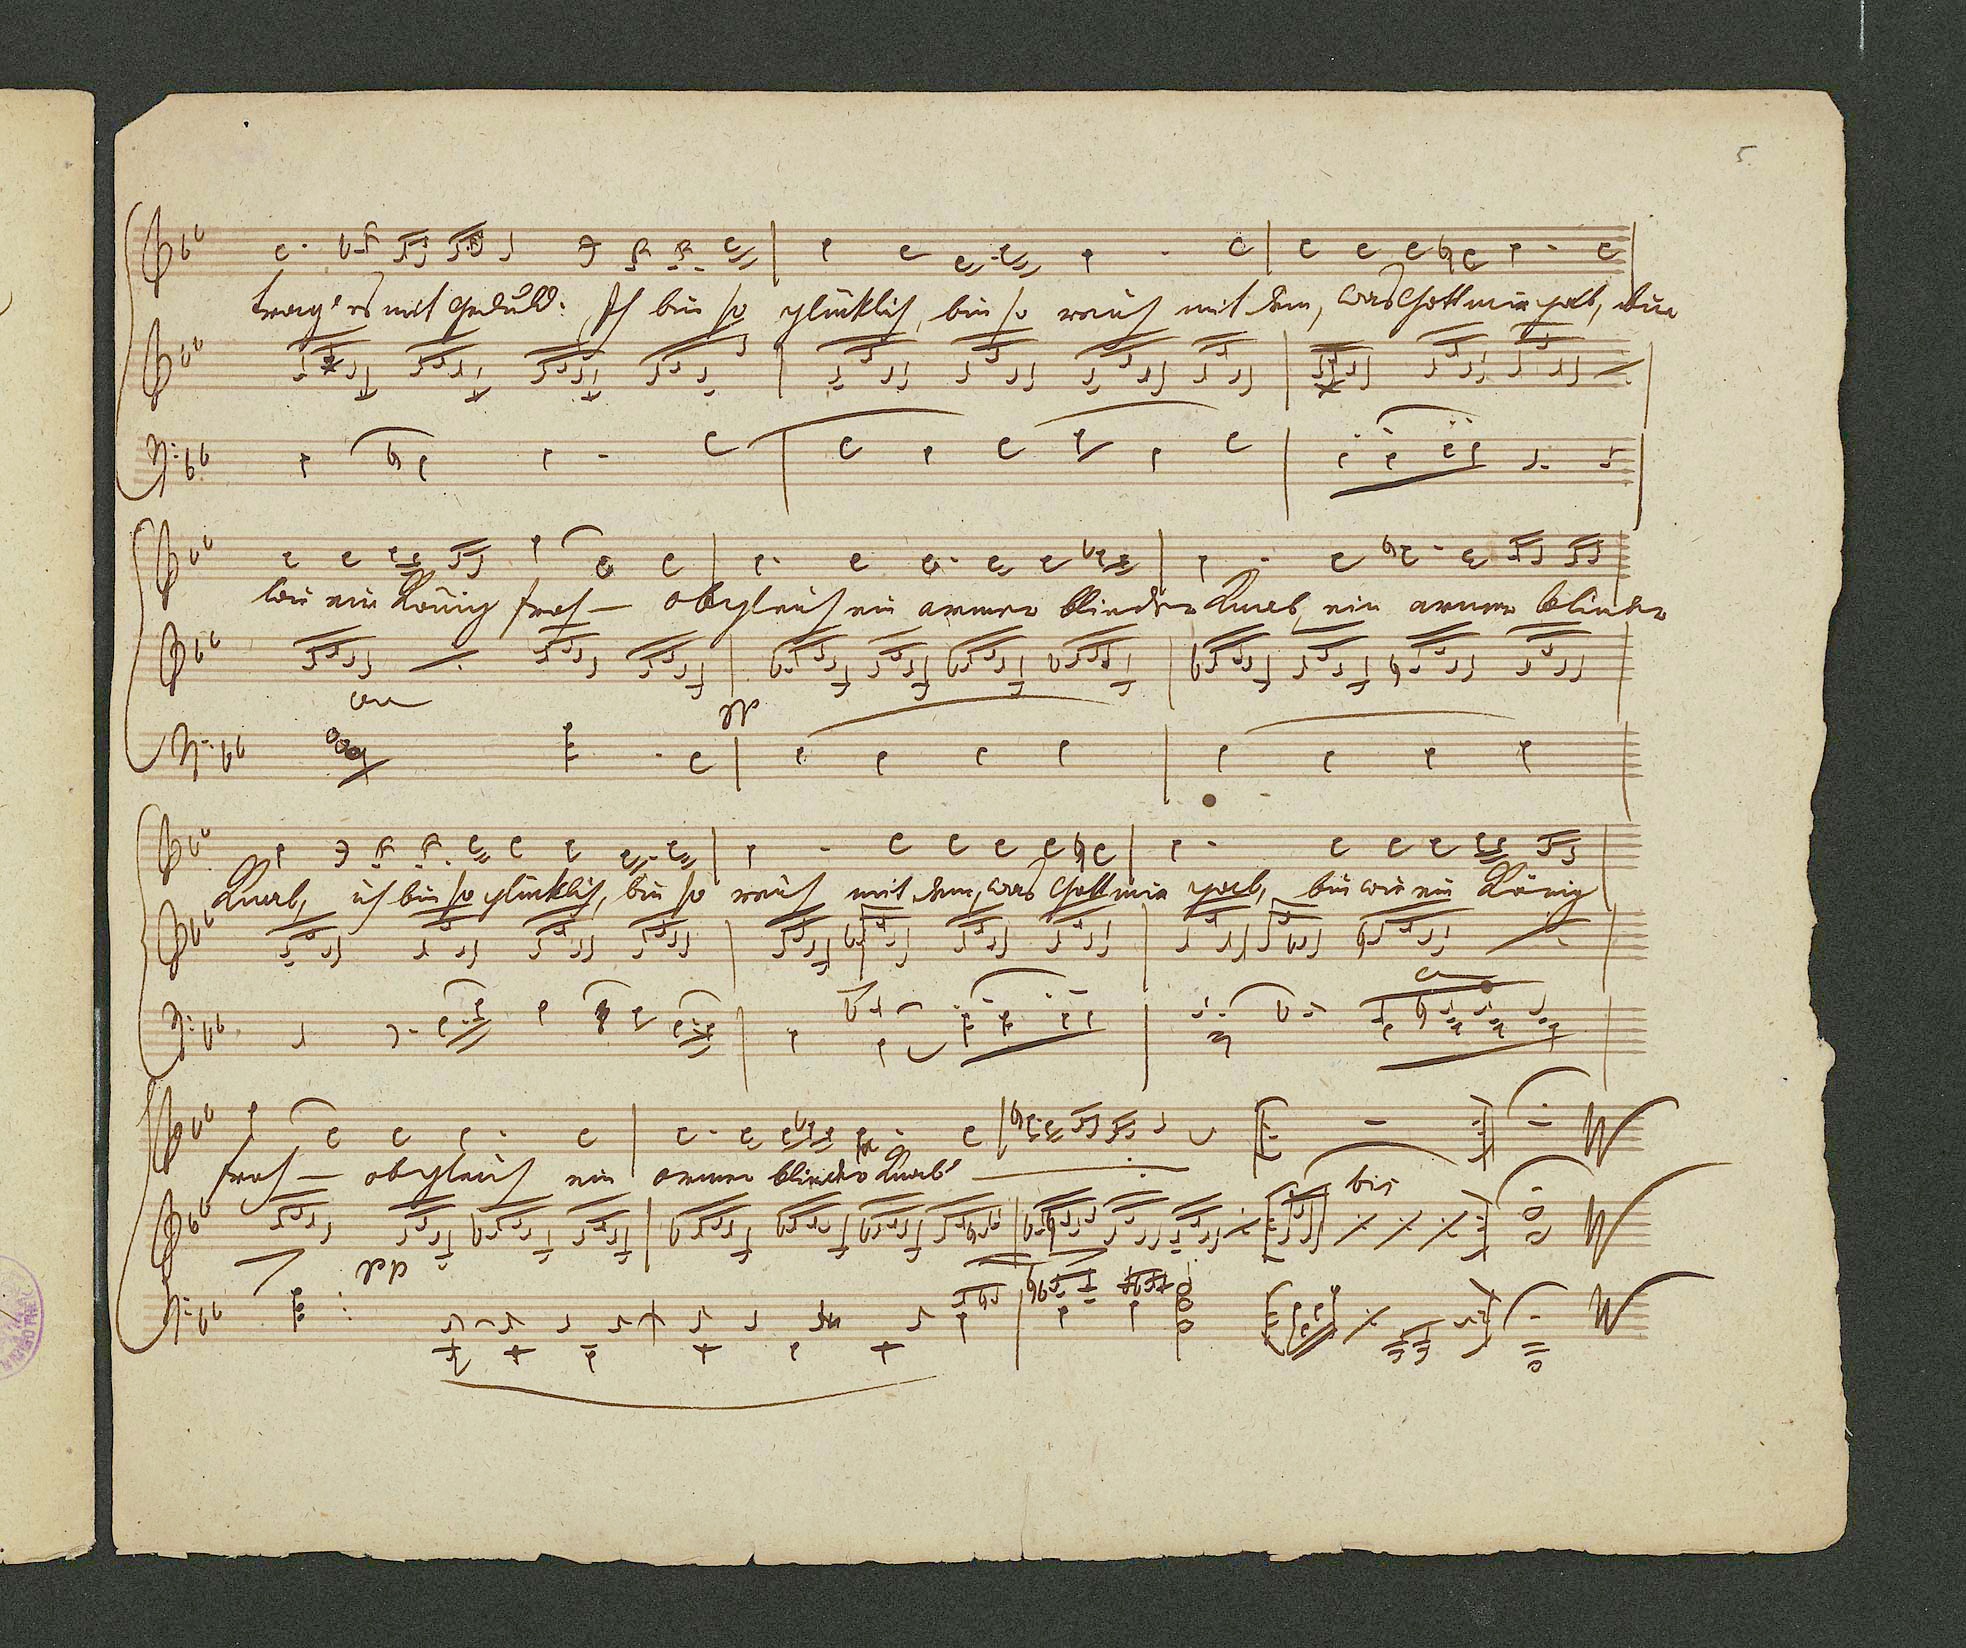 5
trag' es mit Geduld. Ich bin so glücklich, bin so reich mit dem, was Gott mir gab, bin
wie ein König froh – obgleich ein armer blinder Knab, ein armer blinder
pp
Knab, ich bin so glücklich, bin so reich mit dem, was Gott mir gab, bin wie ein König
froh – obgleich ein armer blinder Knab'
bis
pp